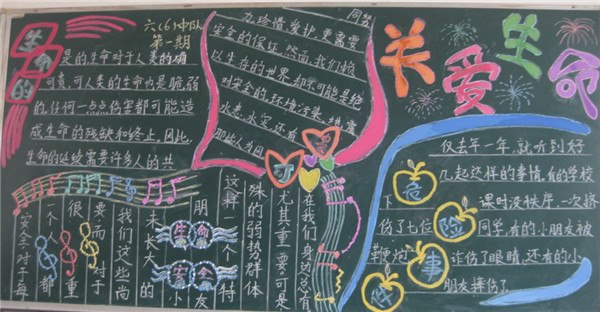 生命的
六(6)中队
第一期
是的生命对于人类的确
可贵,可人类的生命也是脆弱
的,任何一点点伤害都可能造
成生命的残缺和终止。因此,
生命的延续需要许多人的共
同努
力珍惜爱护,更需要
安全的保证。然而,我们赖
以生存的世界,却不可能是绝
对安全的,环境污染、地震
水患、火灾,还有
那些人为因
可
关爱生命
安全对于每
一个人都
很重
要,而对于
我们这些尚
未长大的
小
朋友
生命
安全
这样一个特
殊的弱势群体
尤其重要,可是
在我们身边总有
仅去年一年,就听到好
几起这样的事情,有的学校
下课时没秩序,一次挤
伤了七位同学,有的小朋友被
鞭炮炸伤了眼睛,还有的小
朋友摔伤了
危
险
事